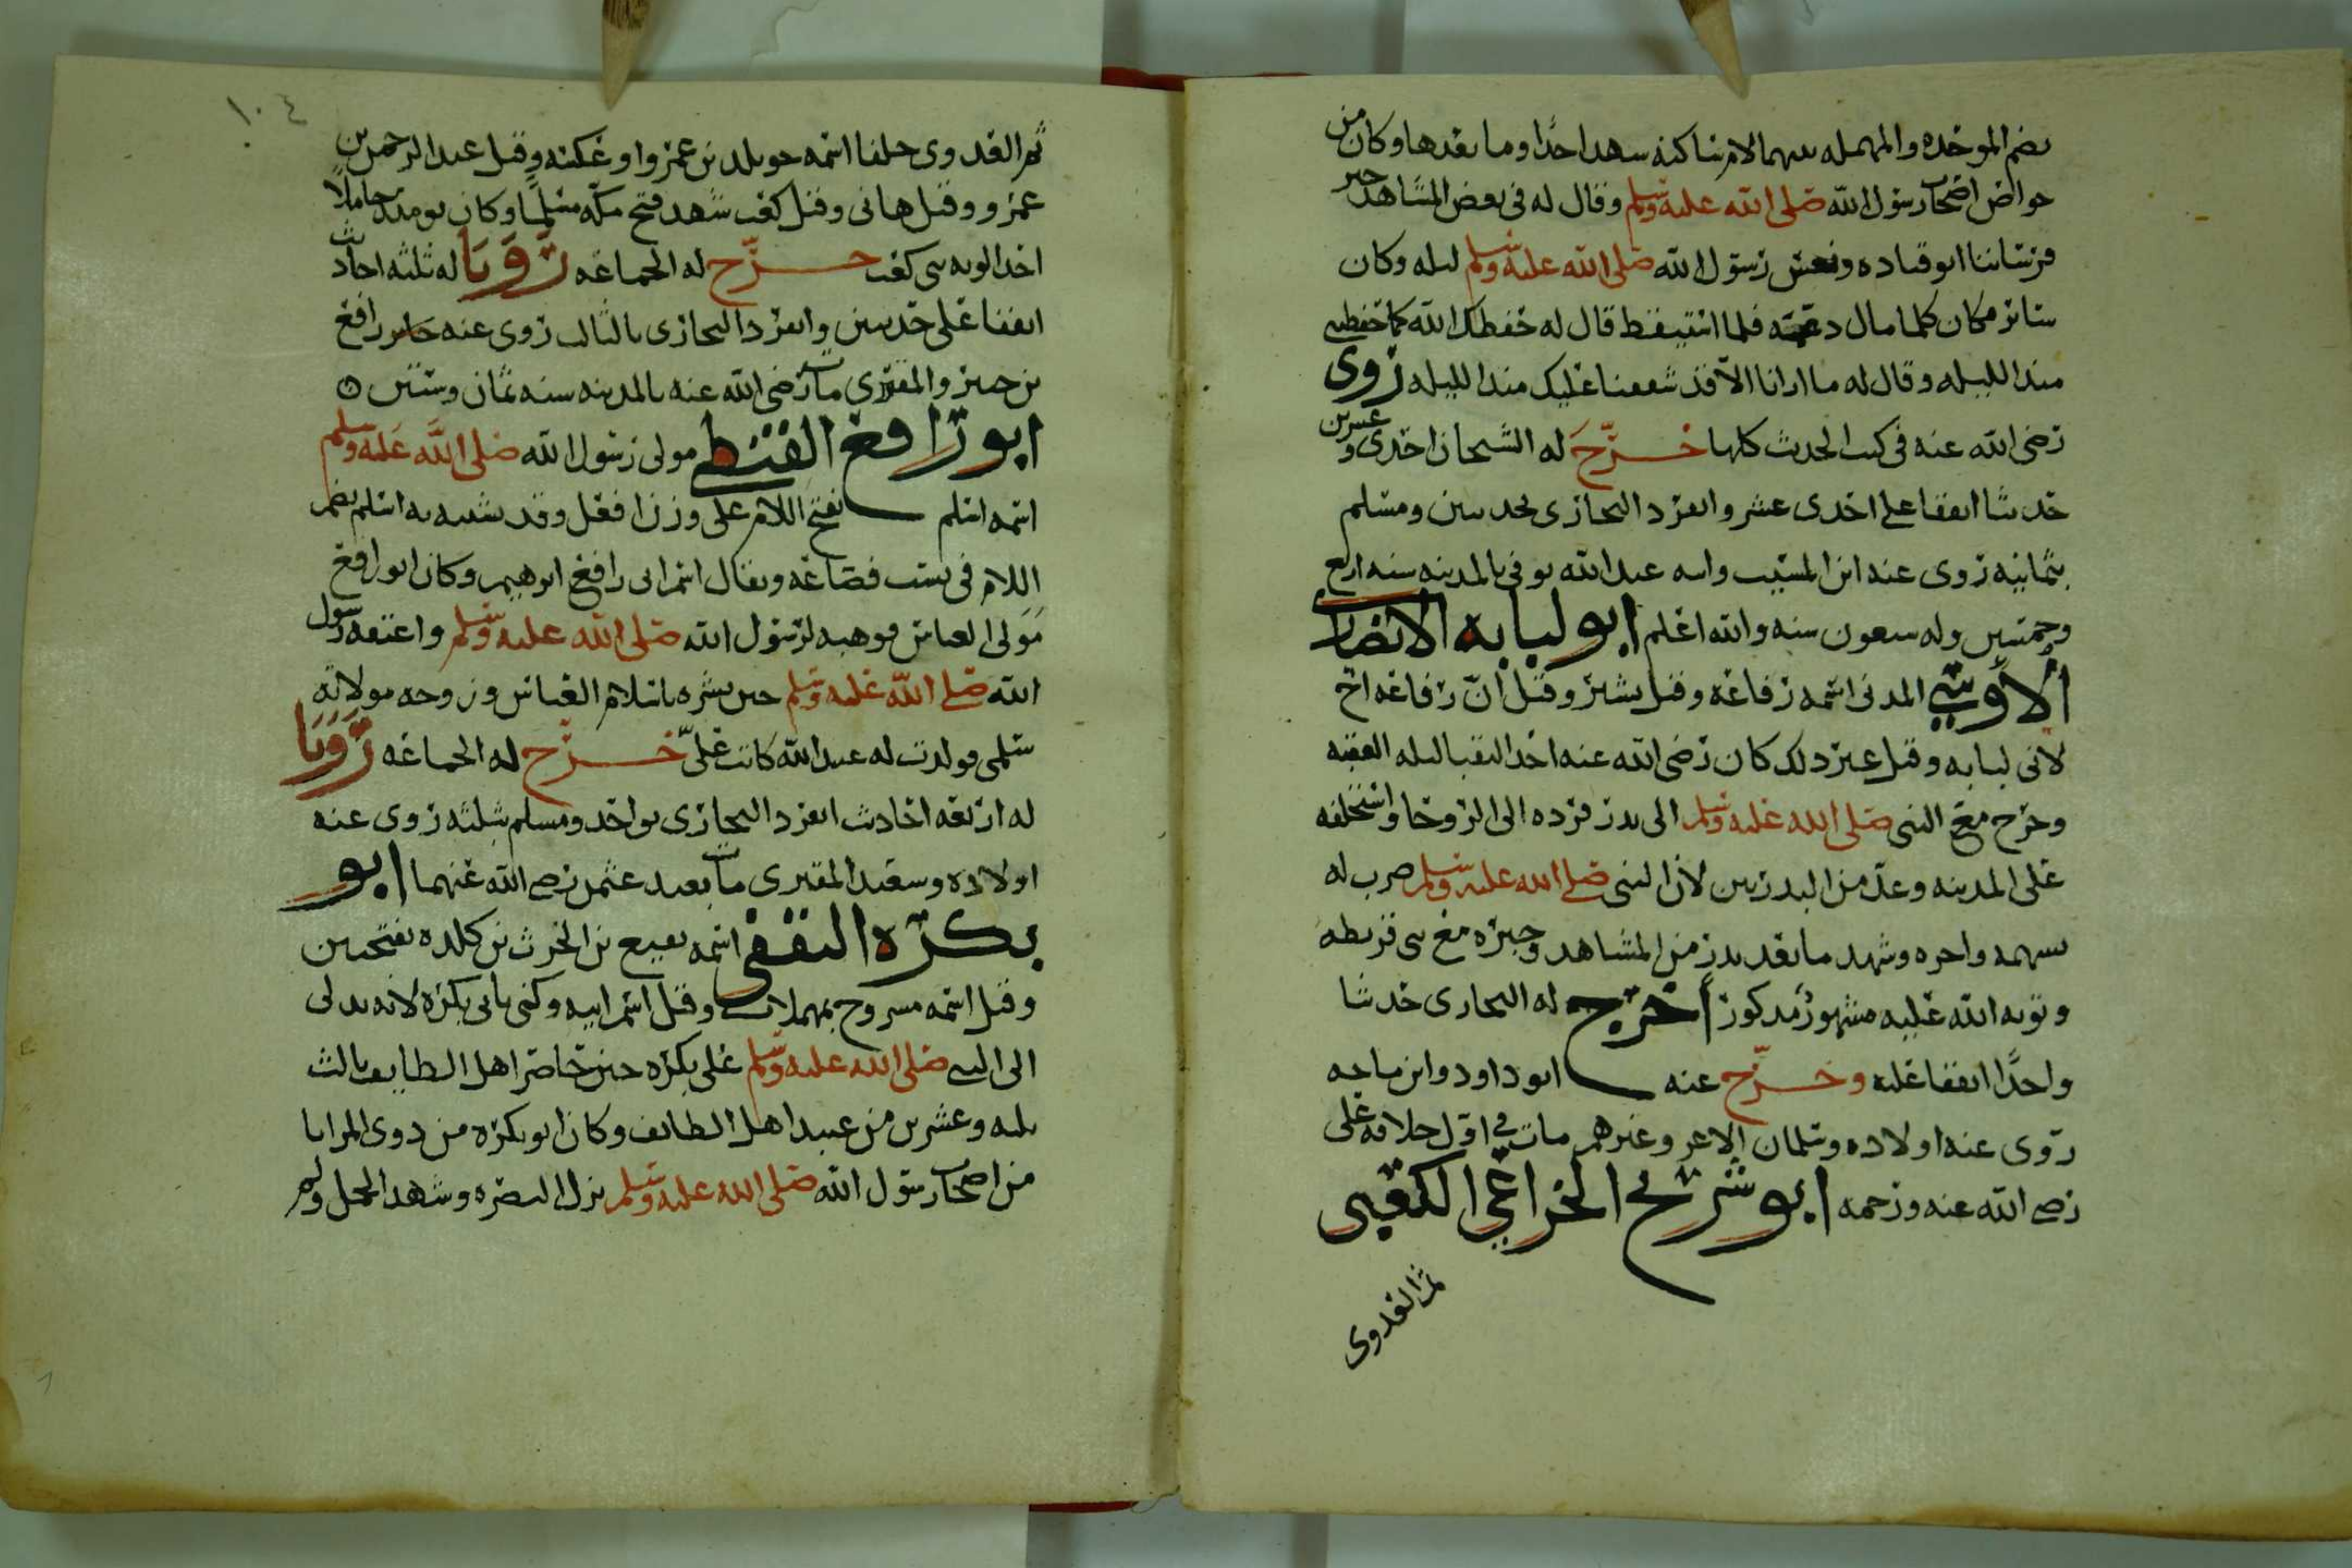 بضم الموحده والمهمله بينهما لام ساكنه شهد احدا وما بعدها وكان من
خواص اصحاب رسول الله صلى الله عليه وسلم وقال له في بعض المشاهد خير
فرساننا ابو قتاده ونعس رسول الله صلى الله عليه وسلم ليله وكان
فكان كلما مال دعمه فلما استيقظ قال له حفظك الله كما حفظتني
منذ الليله وقال له ما ارانا الا قد شققنا عليك منذ الليله روى
رضي الله عنه في كتب الحديث كلها خرج له الشيخان احدى وعشرين
حديثا اتفقا على احدى عشر وانفرد البخاري بحديثين ومسلم
بثمانيه روى عنه ابن المسيب وابنه عبد الله توفي بالمدينه سنه اربع
وخمسين وله سبعون سنه والله اعلم ابو لبابه الانصاري
الأوسي المدني اسمه رفاعه وقيل بشير وقيل ان رفاعه اخ
لابي لبابه وقيل غير ذلك كان رضي الله عنه احد النقبا ليله العقبه
وخرج مع النبي صلى الله عليه وسلم الى بدر فرده الى الروحا واستخلفه
على المدينه وعد من البدريين لان النبي صلى الله عليه وسلم ضرب له
بسهمه واجره وشهد ما بعد بدر من المشاهد وخبره مع بني قريظه
وتوبه الله عليه مشهور مذكور أخرج له البخاري حديثا
واحدا اتفقا عليه وخرج عنه ابو داود وابن ماجه
روى عنه اولاده وسلمان الاغر وغيرهم مات في اول خلافه علي
رضي الله عنه ورحمه ابو شريح الخزاعي الكعبي
ثم العدوي
١٠٤
ثم العدوي حلفا اسمه خويلد بن عمرو او عكسه وقيل عبد الرحمن بن
عمرو وقيل هاني وقيل كعب شهد فتح مكه مسلما وكان يومئذ حاملا
احد الويه بني كعب خرج له الجماعه رويا له ثلثه احاديث
اتفقا على حديثين وانفرد البخاري بالثالث روى عنه نافع
بن جبير والمقبري مات رضي الله عنه بالمدينه سنه ثمان وستين
ابو رافع القبطي مولى رسول الله صلى الله عليه وسلم
اسمه اسلم بفتح اللام على وزن افعل وقد يشتبه به اسلم بضم
اللام في نسب قضاعه ويقال اسم ابي رافع ابرهيم وكان ابو رافع
مولى العباس فوهبه لرسول الله صلى الله عليه وسلم واعتقه رسول
الله صلى الله عليه وسلم حين بشره باسلام العباس وزوجه مولاته
سلمى فولدت له عبد الله كاتب علي خرج له الجماعه رويا
له اربعه احاديث انفرد البخاري بواحد ومسلم بثلثه روى عنه
اولاده وسعيد المقبري مات بعيد عثمن رضي الله عنهما ابو
بكره الثقفي اسمه نفيع بن الحرث بن كلده بفتحتين
وقيل اسمه مسروح بمهملات وقيل اسم ابيه وكني بابي بكره لانه تدلى
الى النبي صلى الله عليه وسلم على بكره حين حاصر اهل الطايف ثالث
ثلثه وعشرين من عبيد اهل الطائف وكان ابو بكره من ذوي المزايا
من اصحاب رسول الله صلى الله عليه وسلم نزل البصره وشهد الجمل ولم